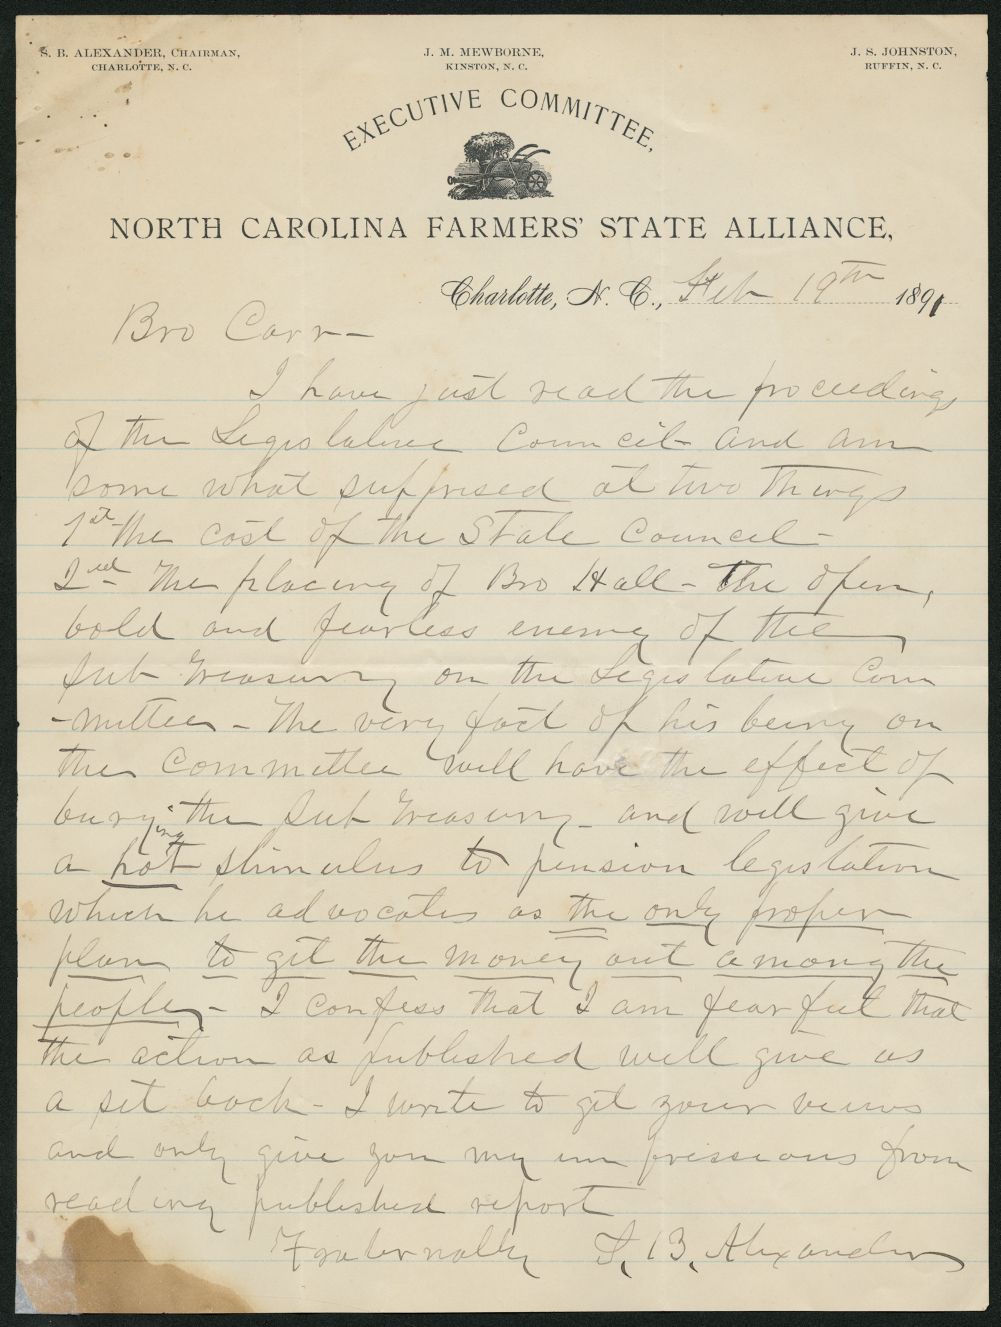 S. B. ALEXANDER, CHAIRMAN,
CHARLOTTE, N. C.
J. M. MEWBORNE,
KINSTON, N. C.
J. S. JOHNSTON,
RUFFIN, N. C.
EXECUTIVE COMMITTEE,
NORTH CAROLINA FARMERS' STATE ALLIANCE,
Charlotte, N. C., Feb 19th 1891
Bro Carr—
I have just read the proceedings
of the Legislative Council and am
some what surprised at two things
1st The cost of the State Council—
2nd The placing of Bro Hall - The open,
bold and fearless enemy of the
Sub Treasury on the Legislative Com
-mittee - The very fact of his being on
the Committee will have the effect of
burying the Sub Treasury - and will give
a hot stimulus to pension legislation
which he advocates as the only proper
plan to get the money out among the
people - I confess that I am fearful that
the action as published will give us
a set back - I write to get your views
and only give you my impressions from
reading published report
Fraternally S. B. Alexander